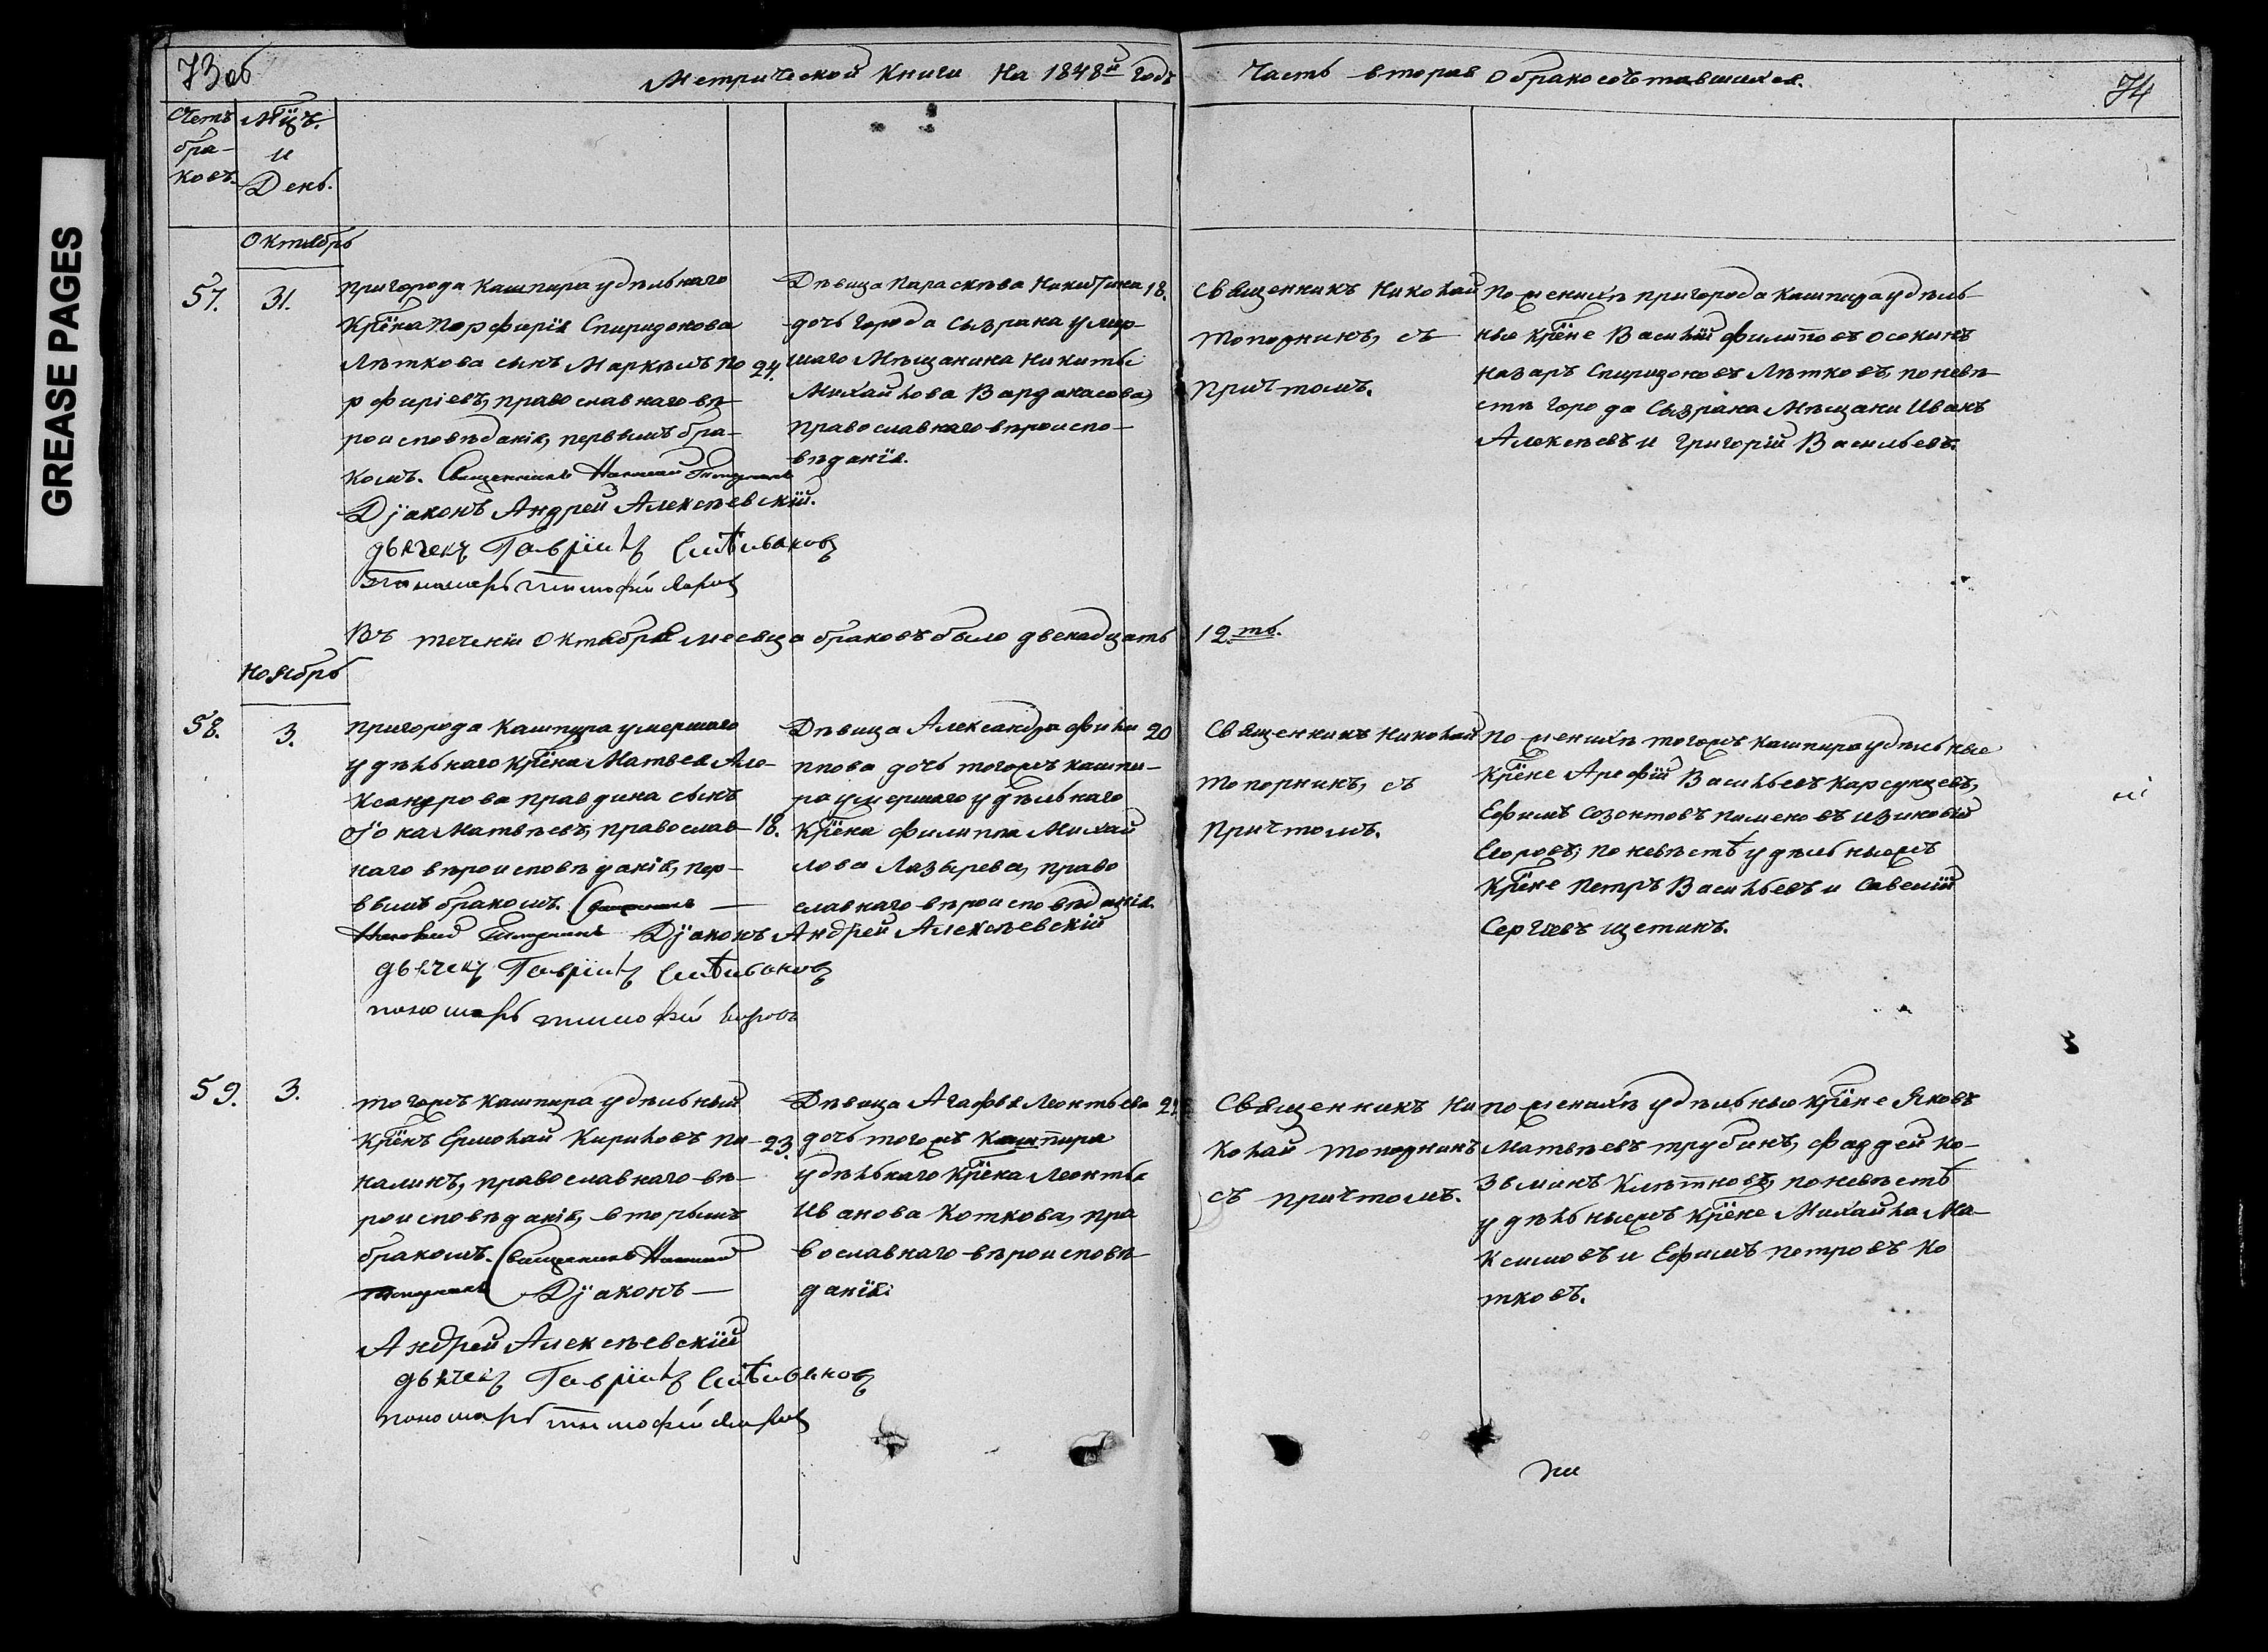 GREASE PAGES
73 об
Метрической Книги На 1848й годъ
Часть вторая о бракосочетавшихся.
74
Счетъ
бра-
ковъ.
Мцъ.
и
День.
Октябрь
57.
31.
Пригорода Кашпира удѣльнаго
Крѣна Порфирія Спиридонова
Лѣткова сынъ Маркелъ По
рфиріевъ, православнаго вѣ-
роисповѣданія, первымъ бра-
комъ. Священникъ Николай Топорнинъ
Дjаконъ Андрей Алексѣевскій.
дьячекъ Гаврiилъ
Пономарь Тимофей
24.
Дѣвица Параскѣва Никитина
дочь города Сызрана умер-
шаго Мѣщанина Никиты
Михайлова
православнаго вѣроиспо-
вѣданія.
18.
Священникъ Николай
Топорнинъ, съ
причтомъ.
По женихѣ пригорода Кашпира удѣль-
ные крѣне Василій Филиповъ Осокинъ
Назаръ Спиридоновъ Лѣтковъ, по невѣ-
стѣ города Сызрана Мѣщани Иванъ
Алексѣевъ и Григорій Васильевъ.
Въ теченіи Октября месяца браковъ было двенадцать 12ть.
Ноябрь
58.
3.
Пригорода Кашпира умершаго
удѣльнаго крѣна Матвея Але-
ксандрова Правдина сынъ
Матвѣевъ, православ-
наго вѣроисповѣданія, пер-
вымъ бракомъ. Священникъ
Николай Топорнинъ Дjаконъ Андрей Алексѣевскій
дьячекъ Гаврiилъ
пономарь Тимофей
18.
Дѣвица Александра Фили
ппова дочь тогожъ Кашпи-
ра умершаго удѣльнаго
Крѣна Филиппа Михай
лова Лазырева, право
славнаго вѣроисповѣданія.
20
Священникъ Николай
Топорнинъ, съ
Причтомъ.
По женихѣ тогожъ Кашпира удѣльные
Крѣне Арефій Васильевъ Карсунцевъ,
Ефимъ Созонтовъ Пименовъ
Егоровъ; по невѣстѣ удѣльныежъ
Крѣне Петръ Васильевъ и Савелій
Сергѣевъ Щетинъ.
59.
3.
тогожъ Кашпира удѣльный
Крѣнъ Ермолай Кириловъ Пи-
налинъ, православнаго вѣ-
роисповѣданія, вторымъ
бракомъ. Священникъ Николай
Топорнинъ Дjаконъ
Андрей Алексѣевскій
дьячекъ Гаврiилъ
пономарь Тимофей
23.
Дѣвица Агафья Леонтьева
дочь тогожъ Кашпира
удѣльнаго Крѣна Леонтья
Иванова Коткова, пра
вославнаго вѣроисповѣ-
данія.
Священникъ Ни
колай Топорнинъ
съ причтомъ.
По женихѣ удѣльные крѣне Яковъ
Матвѣевъ Трубинъ, Фаддей Ко-
зминъ по невѣстѣ
удѣльныежъ крѣне Михайла Ма-
ксимовъ и Ефимъ Петровъ Ко
тковъ.